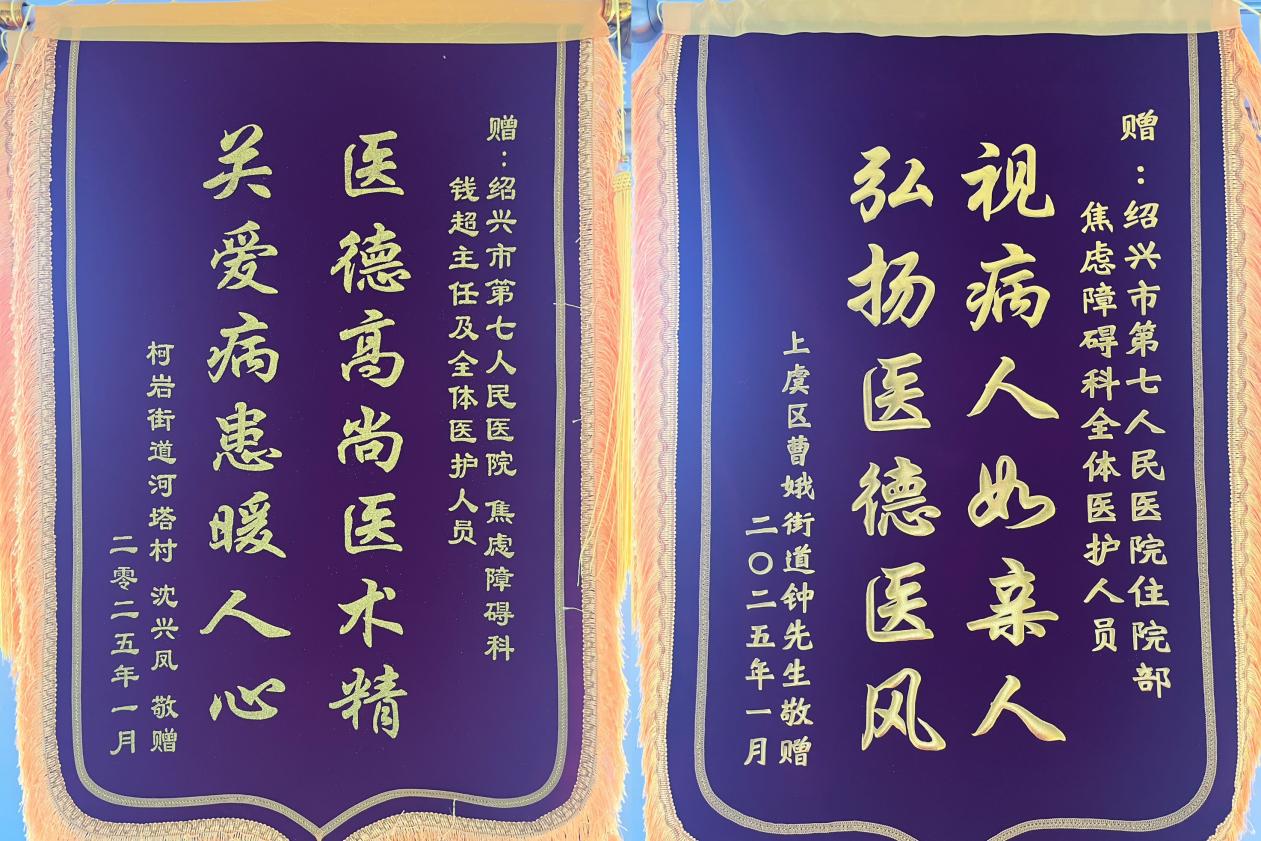 赠：绍兴市第七人民医院 焦虑障碍科
钱超主任及全体医护人员
医德高尚医术精
关爱病患暖人心
柯岩街道河塔村 沈兴凤 敬赠
二零二五年一月
赠：绍兴市第七人民医院住院部
焦虑障碍科全体医护人员
视病人如亲人
弘扬医德医风
上虞区曹娥街道钟先生敬赠
二〇二五年一月